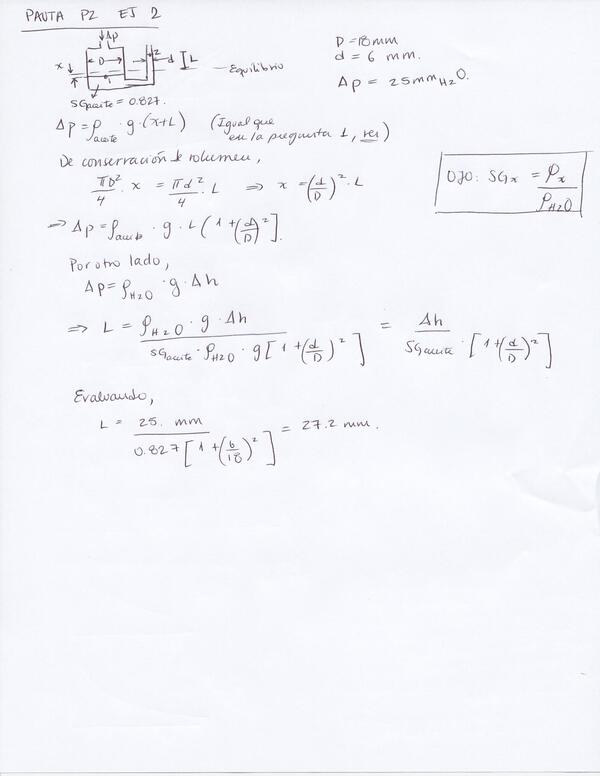 PAUTA P2 EJ 2
Δp
x D 2 d L — Equilibrio
1
SG aceite = 0.827.
D = 18 mm
d = 6 mm.
Δp = 25 mm H2O.
Δp = ρaceite · g · (x+L) (Igual que en la pregunta 1, ver)
De conservación de volumen,
πD²/4 · x = πd²/4 · L ⇒ x = (d/D)² · L
OJO: SGx = ρx/ρH2O
⇒ Δp = ρaceite · g · L (1 + (d/D)²].
Por otro lado,
Δp = ρH2O · g · Δh
⇒ L = ρH2O · g · Δh / SGaceite · ρH2O · g [1 + (d/D)²] = Δh / SGaceite · [1 + (d/D)²]
Evaluando,
L = 25. mm / 0.827 [1 + (6/18)²] = 27.2 mm.